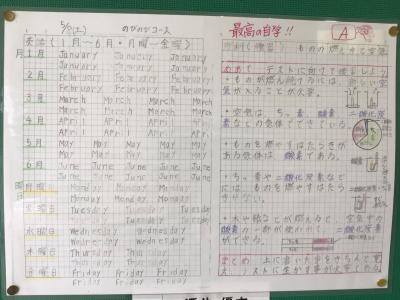 5/9(土) のびのびコース
英語(1月〜6月・月曜〜金曜)
月 1月 January January January
January January January
2月 February February February
February February February
3月 March March March March
March March March March
4月 April April April April
April April April April
5月 May May May May May
May May May May May
6月 June June June June June
June June June June June
曜日 月曜日 Monday Monday Monday
Monday Monday Monday
火曜日 Tuesday Tuesday Tuesday
Tuesday Tuesday Tuesday
水曜日 Wednesday Wednesday
Wednesday Wednesday
木曜日 Thursday Thursday
Thursday Thursday
金曜日 Friday Friday Friday
Friday Friday Friday
最高の自学!! A
ものの燃え方と空気
めあて テストに向けて復習しよう
・ものが燃え続けるには、新しい空
気が入ることが必要。
・空気は、ちっ素、酸素、二酸化炭
素などの気体でできている。
・ものを燃やすはたらきが
ある気体は酸素である。
・ちっ素や二酸化炭素など
には ものを燃やすはたら
きがない。
・木や紙などが燃えると、空気中の
酸素の一部が使われて、二酸化炭素
ができる。
まとめ 上に書いた事をきちんと覚
え、テストに生かす事が大事である。